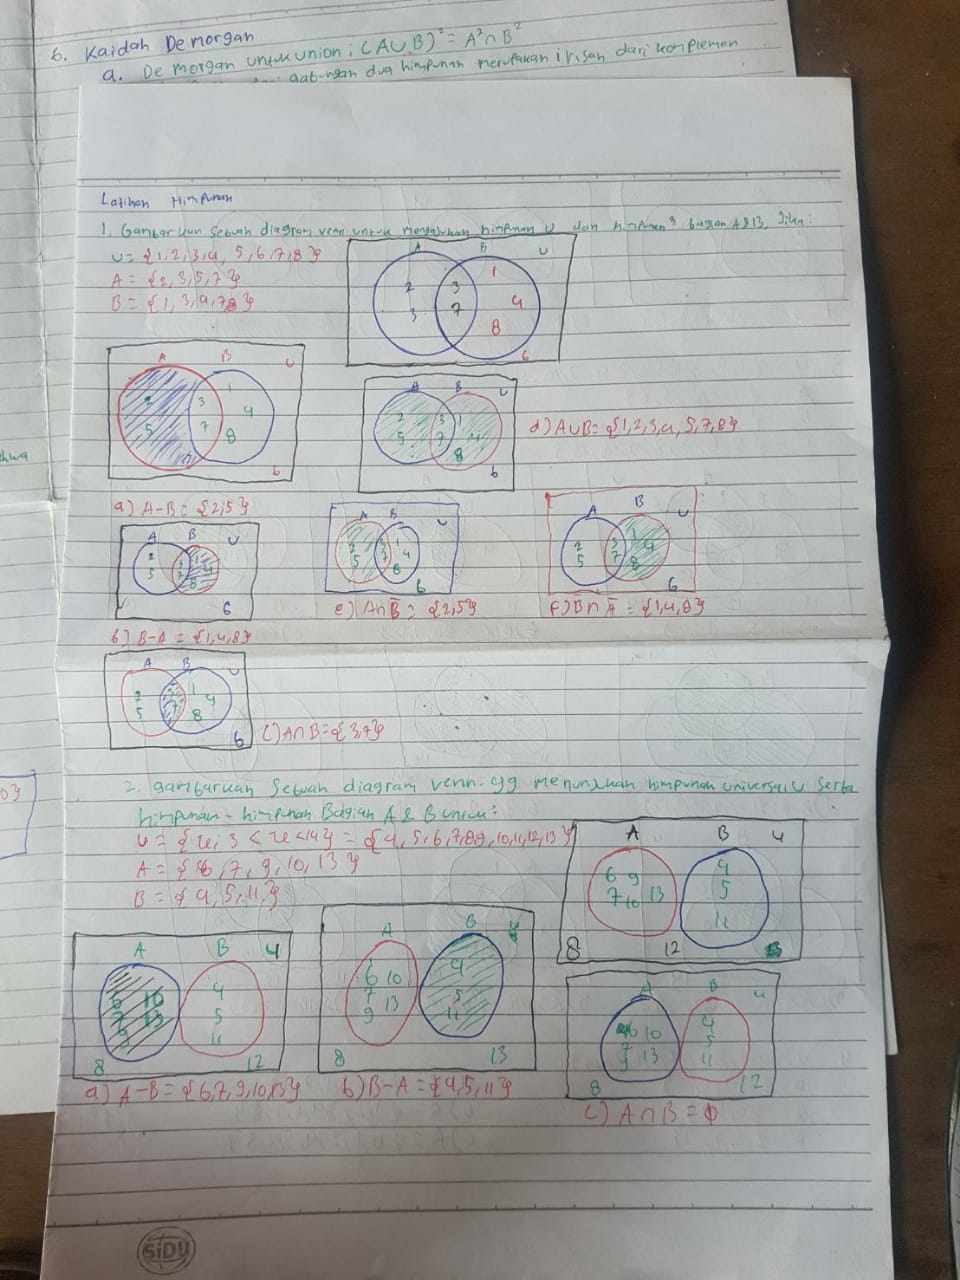 6. Kaidah Demorgan
a. De morgan untuk union : (A∪B)² = A² ∩ B²
gabungan dua himpunan merupakan irisan dari komplemen
hwa
Latihan Himpunan
1. Gambarkan sebuah diagram venn untuk menunjukan himpunan U dan himpunan² bagian A & B. Jika :
U = {1, 2, 3, 4, 5, 6, 7, 8}
A = {2, 3, 5, 7}
B = {1, 3, 4, 7, 8}
A B U
2 3 3 7 1 4 8 6
A B U
2 5 3 7 1 4 8 6
a) A-B = {2,5}
A B U
2 5 3 7 1 4 8 6
d) A∪B = {1,2,3,4, 5,7,8}
A B U
2 5 3 7 1 4 8 6
b) B-A = {1,4,8}
A B U
2 5 3 7 1 4 8 6
e) A∩B̅ = {2,5}
A B U
2 5 3 7 1 4 8 6
f) B∩A̅ = {1,4,8}
A B U
2 5 3 7 1 4 8 6
c) A∩B = {3,7}
2. gambarkan sebuah diagram venn yg menunjukan himpunan universal U serta
himpunan - himpunan Bagian A & B untuk :
U = {x, 3 < x < 14} = {4, 5, 6, 7, 8, 9, 10, 11, 12, 13}
A = {6, 7, 9, 10, 13}
B = {4, 5, 11}
A B U
6 9 7 10 13 4 5 11
8 12
A B U
6 10 7 13 9 4 5 11
8 12
a) A-B = {6,7,9,10,13}
A B U
6 10 7 13 9 4 5 11
8 13
b) B-A = {4,5,11}
A B U
6 10 7 13 9 4 5 11
8 12
c) A∩B = ϕ
SiDU